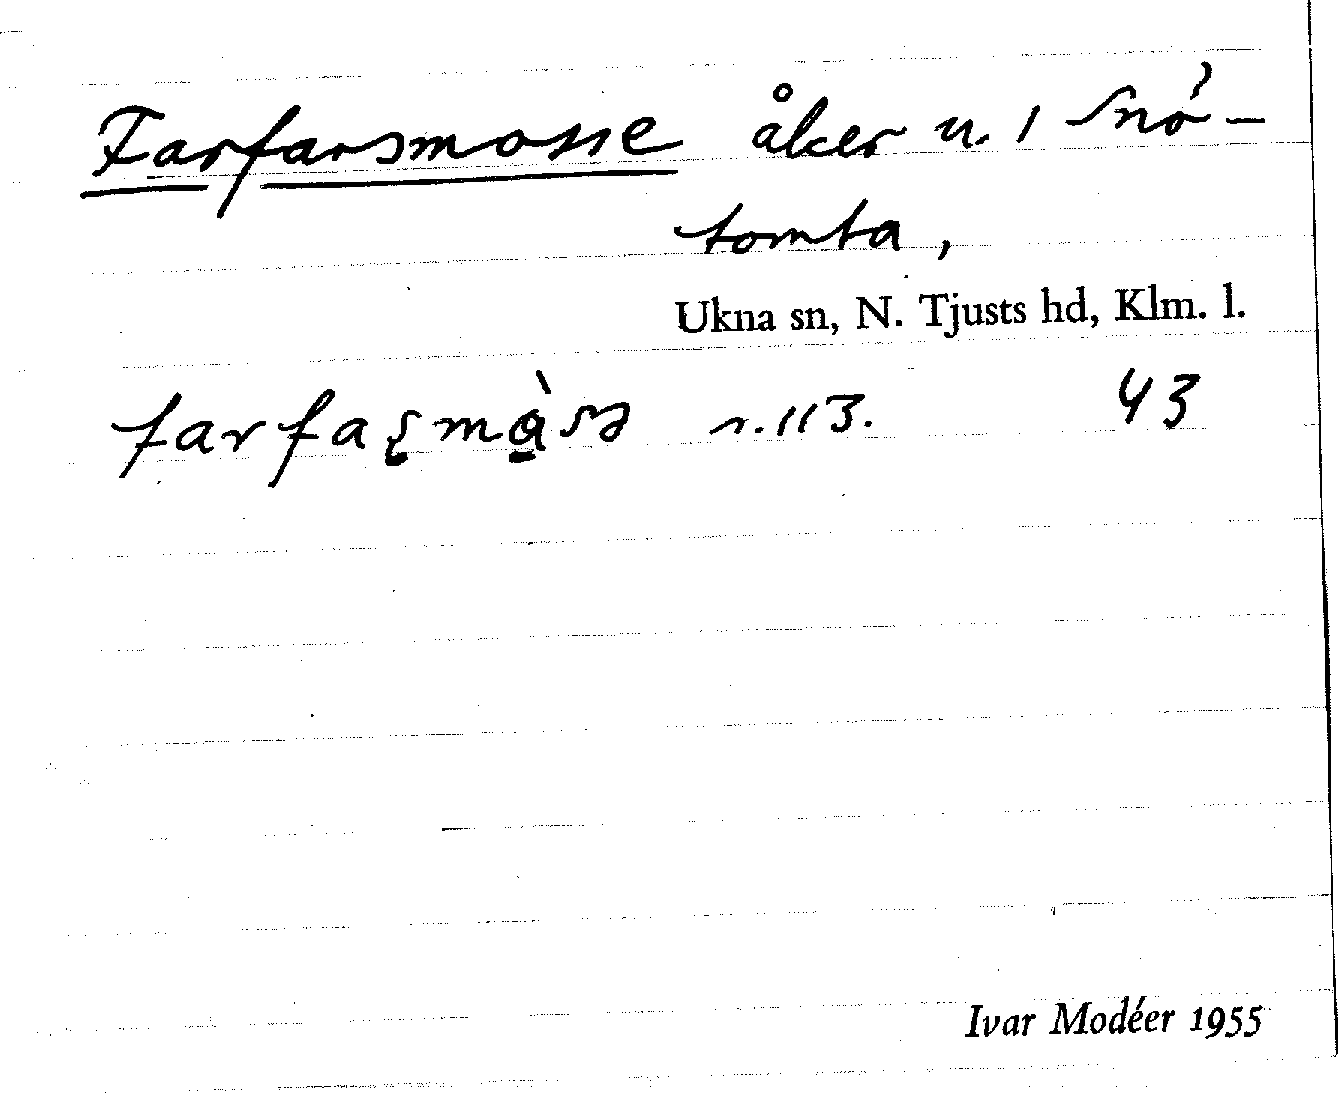 Farfarsmosse åker u. 1 Snö-
tomta,
Ukna sn, N. Tjusts hd, Klm. l.
r. 113. 43
Ivar Modéer 1955